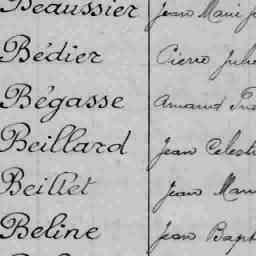 Beaussier Jean Marie
Bédier Pierre Jul
Bégasse Amand
Beillard Jean Celest
Beillet Jean Mar
Beline Jean Bapt